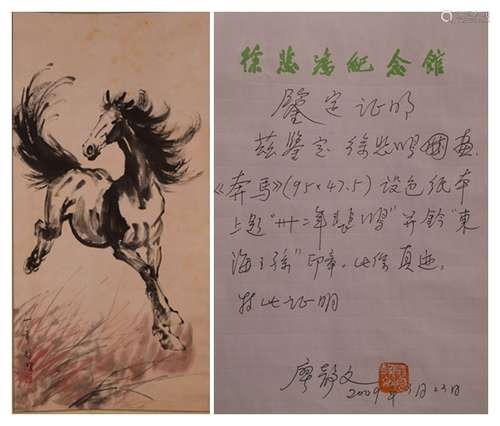 徐悲鸿纪念馆
鑒定证明
茲鑒定徐悲鸿國画
《奔马》(95×47.5)设色纸本
上题“卅二年悲鸿”并钤“東
海王孫”印章。此係真迹。
特此证明
廖静文
2009年3月23日